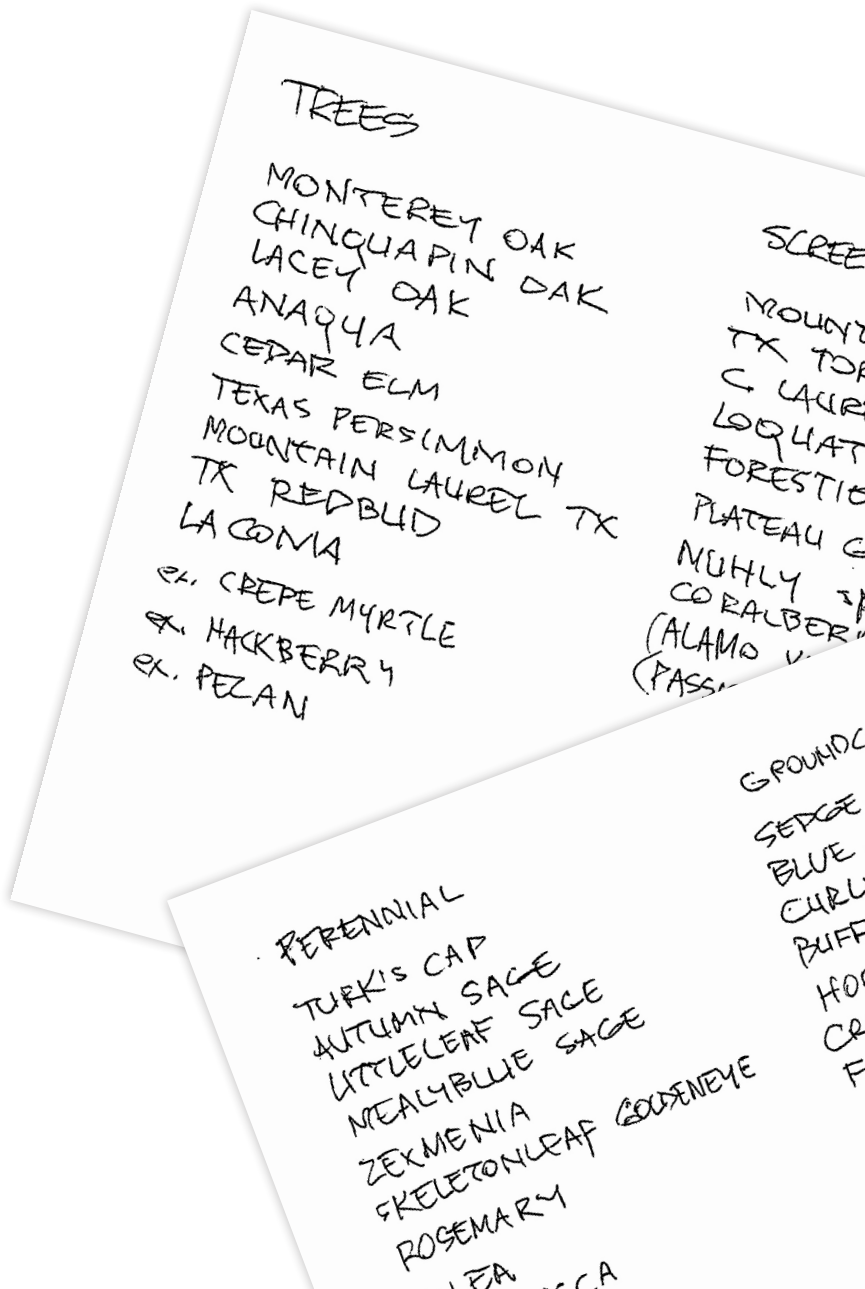 TREES
MONTEREY OAK
CHINQUAPIN OAK
LACEY OAK
ANAQUA
CEDAR ELM
TEXAS PERSIMMON
MOUNTAIN LAUREL TX
TX REDBUD
LA COMA
ex. CREPE MYRTLE
ex. HACKBERRY
ex. PECAN
SCREE
MOUNT
TX TOR
C. LAUR
LOQUAT
FORESTIE
PLATEAU G
NUHLY
CORALBER
(ALAMO V
(PASS
PERENNIAL
TURK'S CAP
AUTUMN SAGE
LITTLELEAF SAGE
MEALYBLUE SAGE
ZEXMENIA
SKELETONLEAF GOLDENEYE
ROSEMARY
LEA
CCA
GROUNDC
SEDGE
BLUE
CURL
BUFF
HO
CR
F